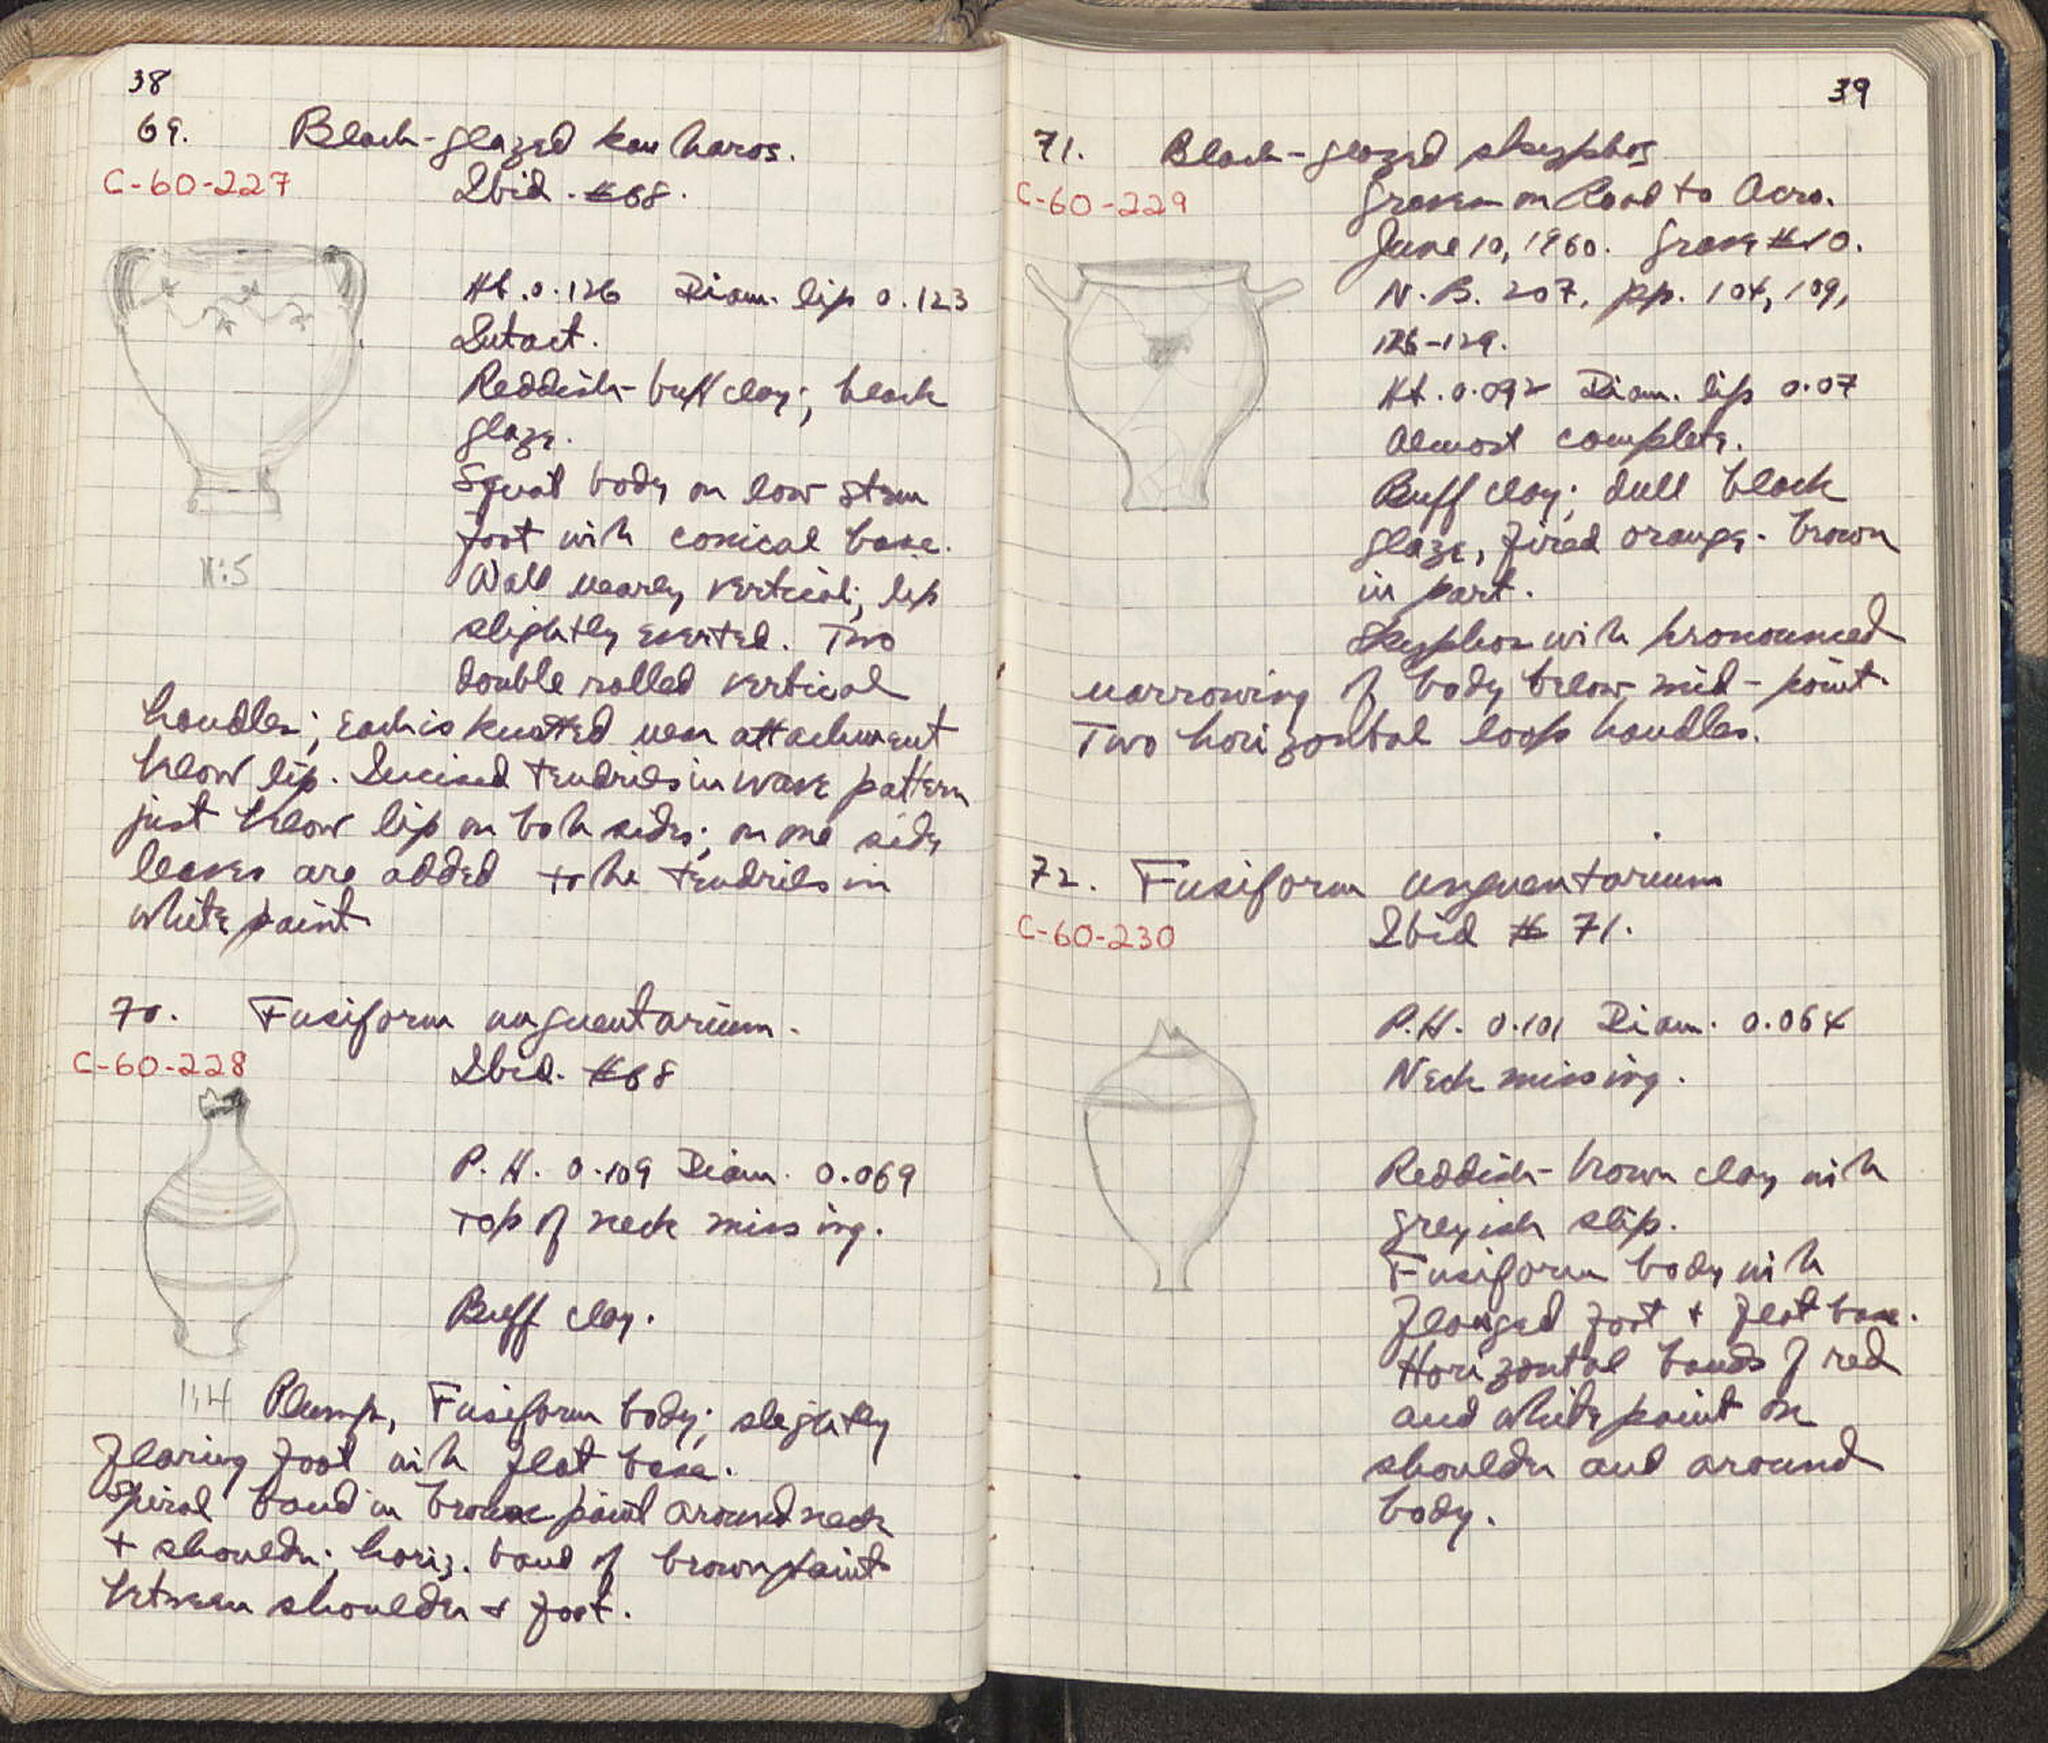 38
69. Black-glazed kantharos.
C-60-227 Ibid. #68.
Ht. 0.126 Diam. lip 0.123
Intact.
Reddish-buff clay; black
glaze.
Squat body on low stem
foot with conical base.
Wall nearly vertical; lip
slightly everted. Two
double rolled vertical
handles; each is knotted near attachment
below lip. Incised tendrils in wave pattern
just below lip on both sides; on one side
leaves are added to the tendrils in
white paint.
70. Fusiform unguentarium.
C-60-228 Ibid. #68
P.H. 0.109 Diam. 0.069
Top of neck missing.
Buff clay.
Plump, Fusiform body; slightly
flaring foot with flat base.
Spiral band in brown paint around neck
+ shoulder; horiz. band of brown paint
between shoulder + foot.
39
71. Black-glazed skyphos
C-60-229 Graves on Road to Acro.
June 10, 1960. Grave #10.
N.B. 207, pp. 104, 109,
126-129.
Ht. 0.092 Diam. lip 0.07
Almost complete.
Buff clay; dull black
glaze, fired orange-brown
in part.
Skyphos with pronounced
narrowing of body below mid-point.
Two horizontal loop handles.
72. Fusiform unguentarium
C-60-230 Ibid # 71.
P.H. 0.101 Diam. 0.064
Neck missing.
Reddish-brown clay with
greyish slip.
Fusiform body with
flanged foot + flat base.
Horizontal bands of red
and white paint on
shoulder and around
body.